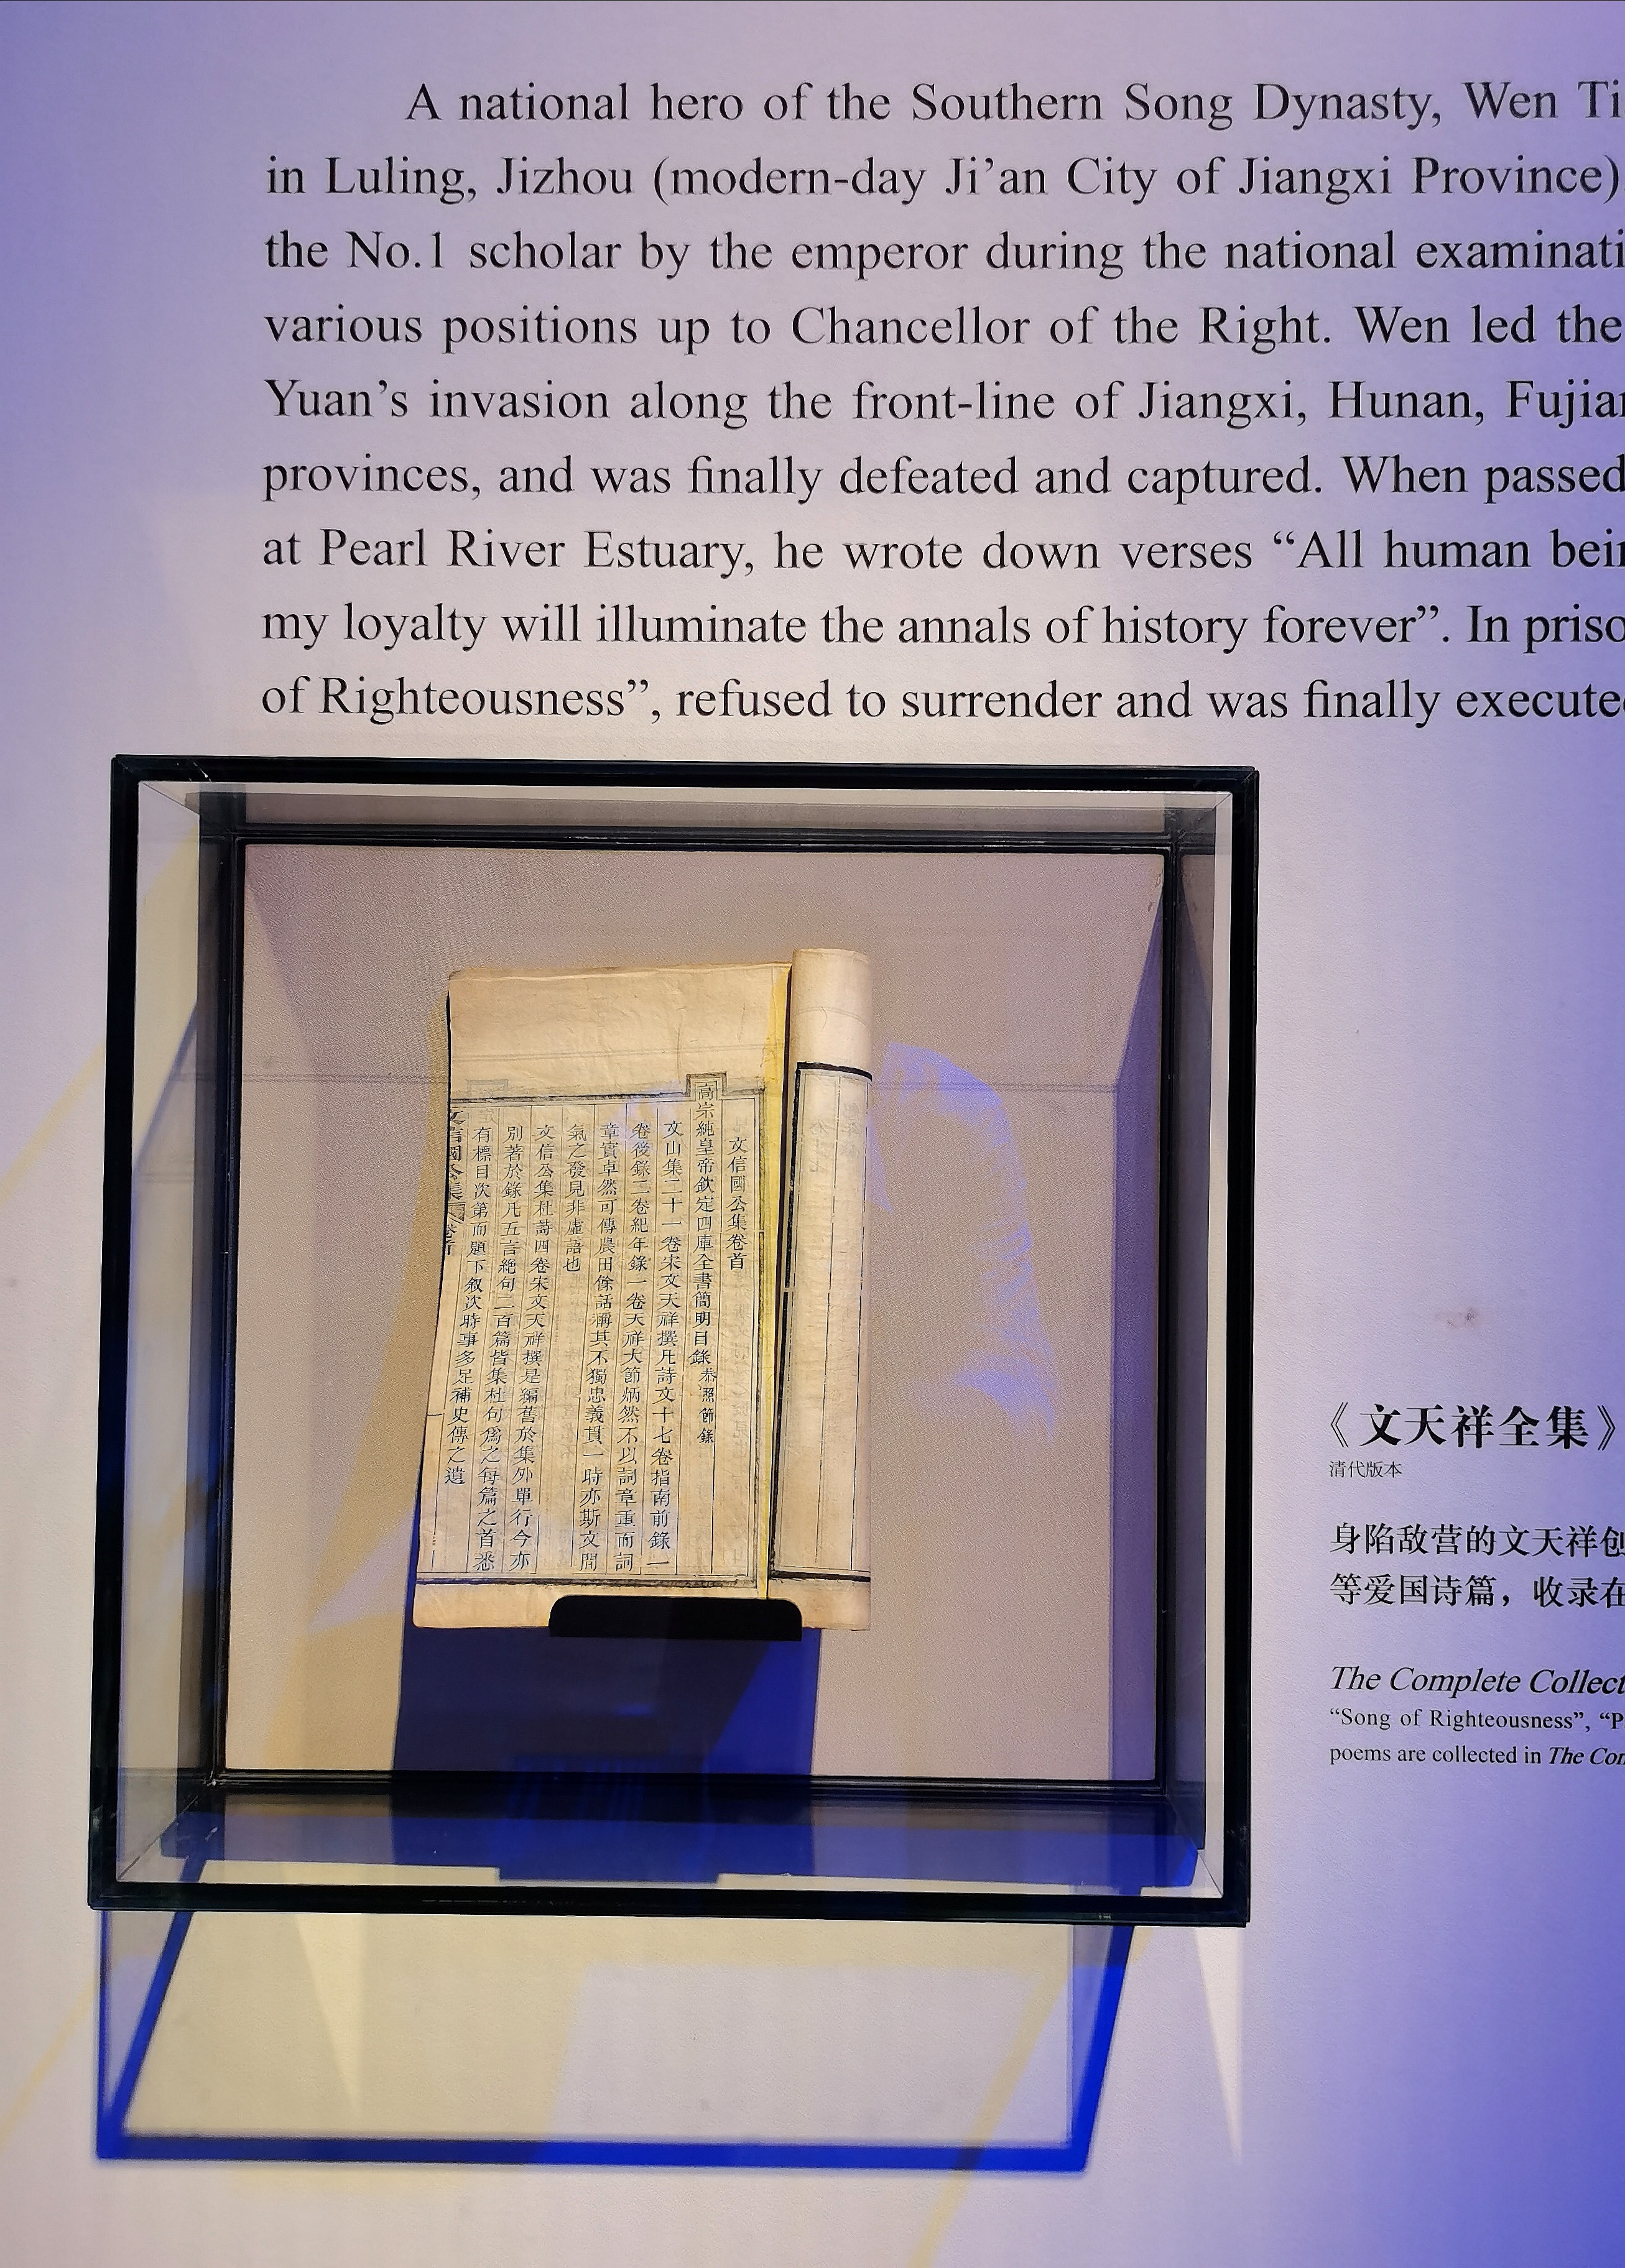 A national hero of the Southern Song Dynasty, Wen Ti
in Luling, Jizhou (modern-day Ji’an City of Jiangxi Province)
the No.1 scholar by the emperor during the national examinati
various positions up to Chancellor of the Right. Wen led the
Yuan’s invasion along the front-line of Jiangxi, Hunan, Fujian
provinces, and was finally defeated and captured. When passed
at Pearl River Estuary, he wrote down verses “All human bein
my loyalty will illuminate the annals of history forever”. In priso
of Righteousness”, refused to surrender and was finally execute
文信國公集卷首
高宗純皇帝欽定四庫全書簡明目錄恭照節錄
文山集二十一卷宋文天祥撰凡詩文十七卷指南前錄一
卷後錄二卷紀年錄一卷天祥大節炳然不以詞章重而詞
章實卓然可傳農田餘話稱其不獨忠義貫一時亦斯文間
氣之發見非虛語也
文信公集杜詩四卷宋文天祥撰是編舊於集外單行今亦
別著於錄凡五言絕句二百篇皆集杜句為之每篇之首悉
有標目次第而題下叙次時事多足補史傳之遺
文信國公集 卷首
一
《文天祥全集》
清代版本
身陷敌营的文天祥创
等爱国诗篇，收录在
The Complete Collect
“Song of Righteousness”, “P
poems are collected in The Con